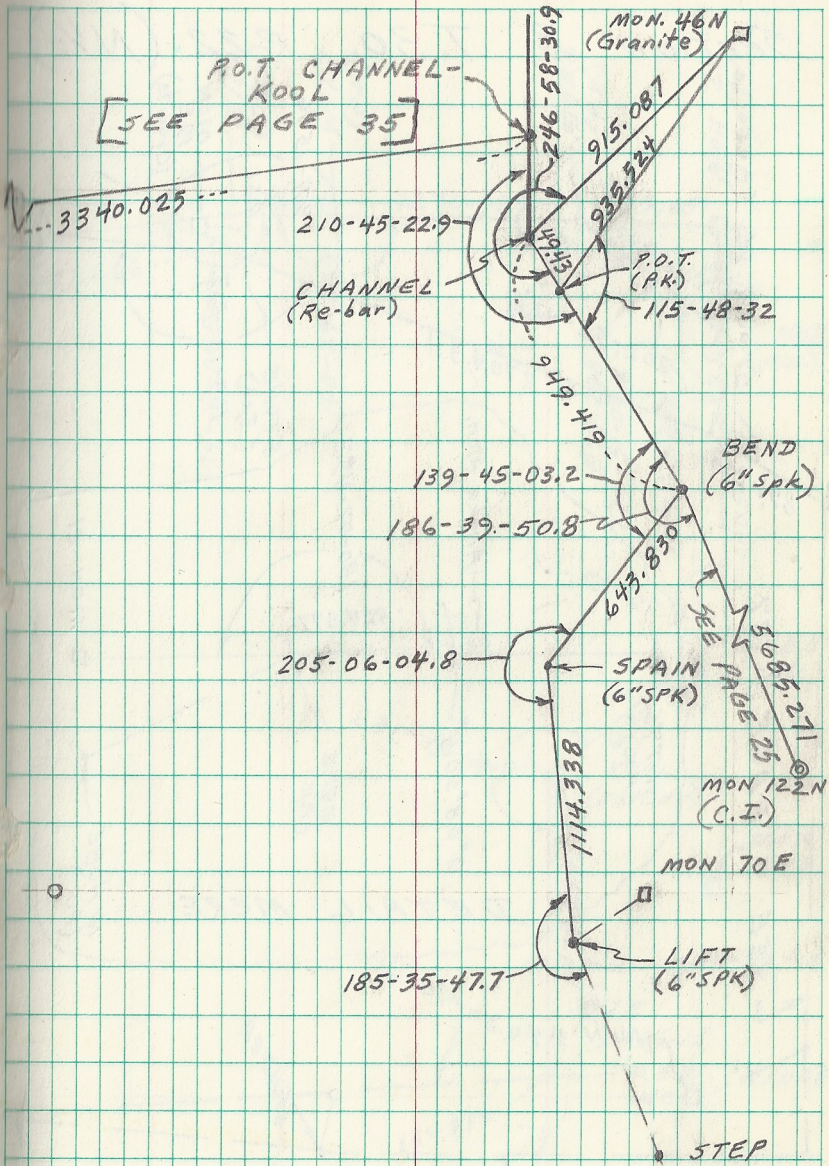 MON. 46N
(Granite)
P.O.T. CHANNEL-
KOOL
[SEE PAGE 35]
246-58-30.9
915.087
935.524
3340.025 ---
210-45-22.9
49.43
P.O.T.
(P.K.)
CHANNEL
(Re-bar)
115-48-32
949.419
BEND
(6"spk)
139-45-03.2
186-39.-50.8
643.830
SEE PAGE 25
5685.271
205-06-04.8
SPAIN
(6"SPK)
MON 122N
(C.I.)
1114.338
MON 70E
LIFT
(6"SPK)
185-35-47.7
STEP